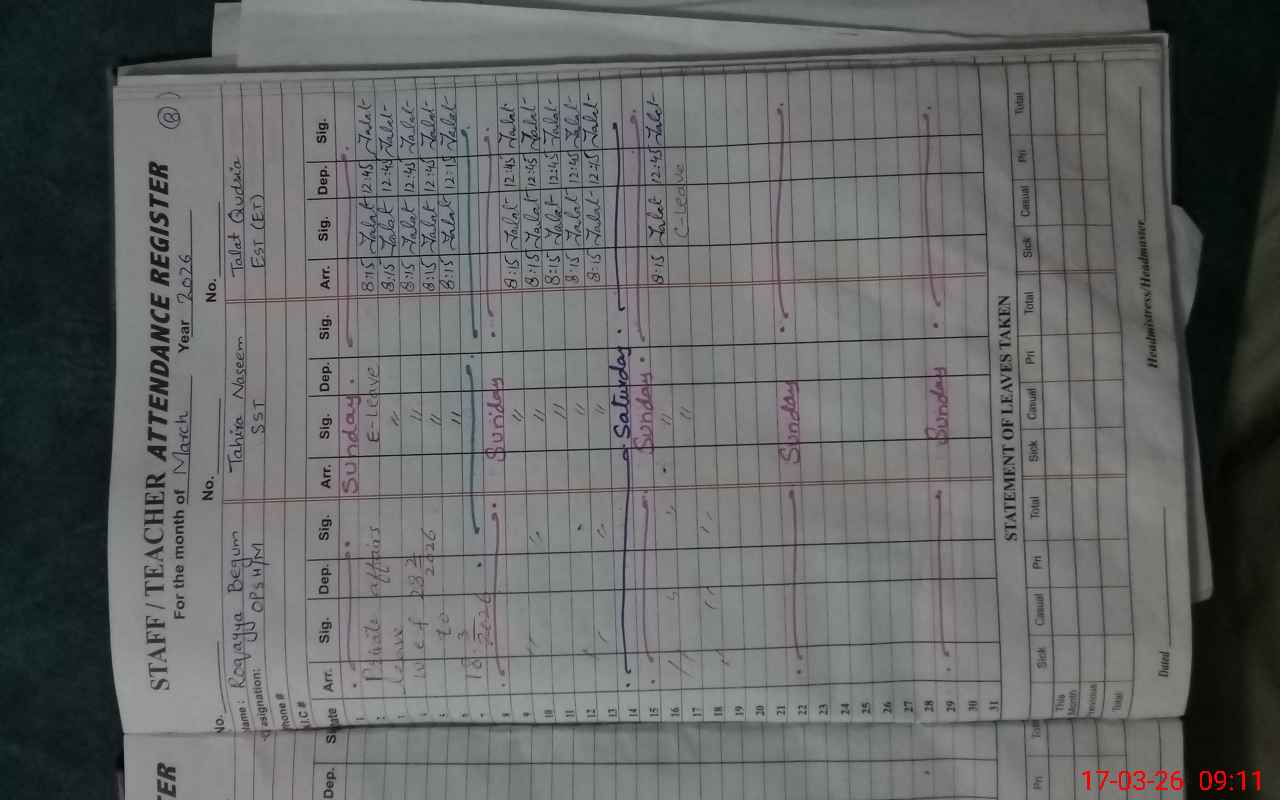 STAFF / TEACHER ATTENDANCE REGISTER (B)
For the month of March Year 2026
No. No. No.
Name: Roqayya Begum Tahira Naseem Talat Qudsia
Designation: OPS H/M SST EST (ET)
Phone #
N.I.C #
Date Arr. Sig. Dep. Sig. Arr. Sig. Dep. Sig. Arr. Sig. Dep. Sig.
1 Sunday
2 Private affairs E-Leave 8:15 Talat 12:45 Talat
3 Leave " 8:15 Talat 12:45 Talat
4 w e f 28 2/2026 " 8:15 Talat 12:45 Talat
5 to " 8:15 Talat 12:45 Talat
6 3/2026 " 8:15 Talat 12:15 Talat
7
8 Sunday
9 " 8:15 Talat 12:45 Talat
10 " " 8:15 Talat 12:45 Talat
11 " 8:15 Talat 12:45 Talat
12 " 8:15 Talat 12:45 Talat
13 " " 8:15 Talat 12:45 Talat
14 Saturday
15 Sunday
16 " " " 8:15 Talat 12:45 Talat
17 " " " C-Leave
18
19
20
21
22 Sunday
23
24
25
26
27
28
29 Sunday
30
31
STATEMENT OF LEAVES TAKEN
Sick Casual Pri Total Sick Casual Pri Total Sick Casual Pri Total
This Month
Previous
Total
Dated Headmistress/Headmaster
TER
Dep. Sig.
Pri Total
17-03-26 09:11